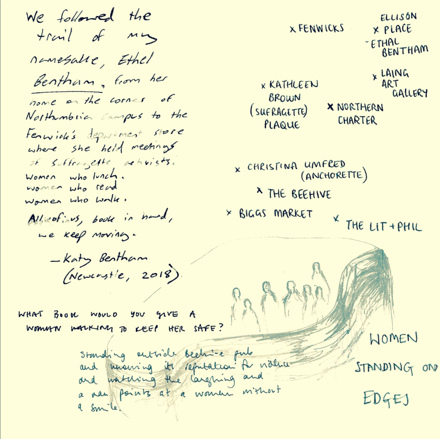 We followed the
trail of my
namesake, Ethel
Bentham, from her
home on the corner of
Northumbria campus to the
Fenwick's department store
where she held meetings
of suffragette activists.
Women who lunch.
women who read
women who walk.
All of us, book in hand,
we keep moving.
- Katy Bentham
(Newcastle, 2018)
x FENWICKS
ELLISON
x PLACE
- ETHAL
BENTHAM
x LAING
ART
GALLERY
x KATHLEEN
BROWN
(SUFRAGETTE)
PLAQUE
x NORTHERN
CHARTER
x CHRISTINA UMFRED
(ANCHORETTE)
x THE BEEHIVE
x BIGGS MARKET
x THE LIT + PHIL
WHAT BOOK WOULD YOU GIVE A
WOMAN WALKING TO KEEP HER SAFE?
Standing outside Beehive pub
and knowing its reputation for violence
and watching the laughing and
a man points at a woman without
a smile.
WOMEN
STANDING ON
EDGES